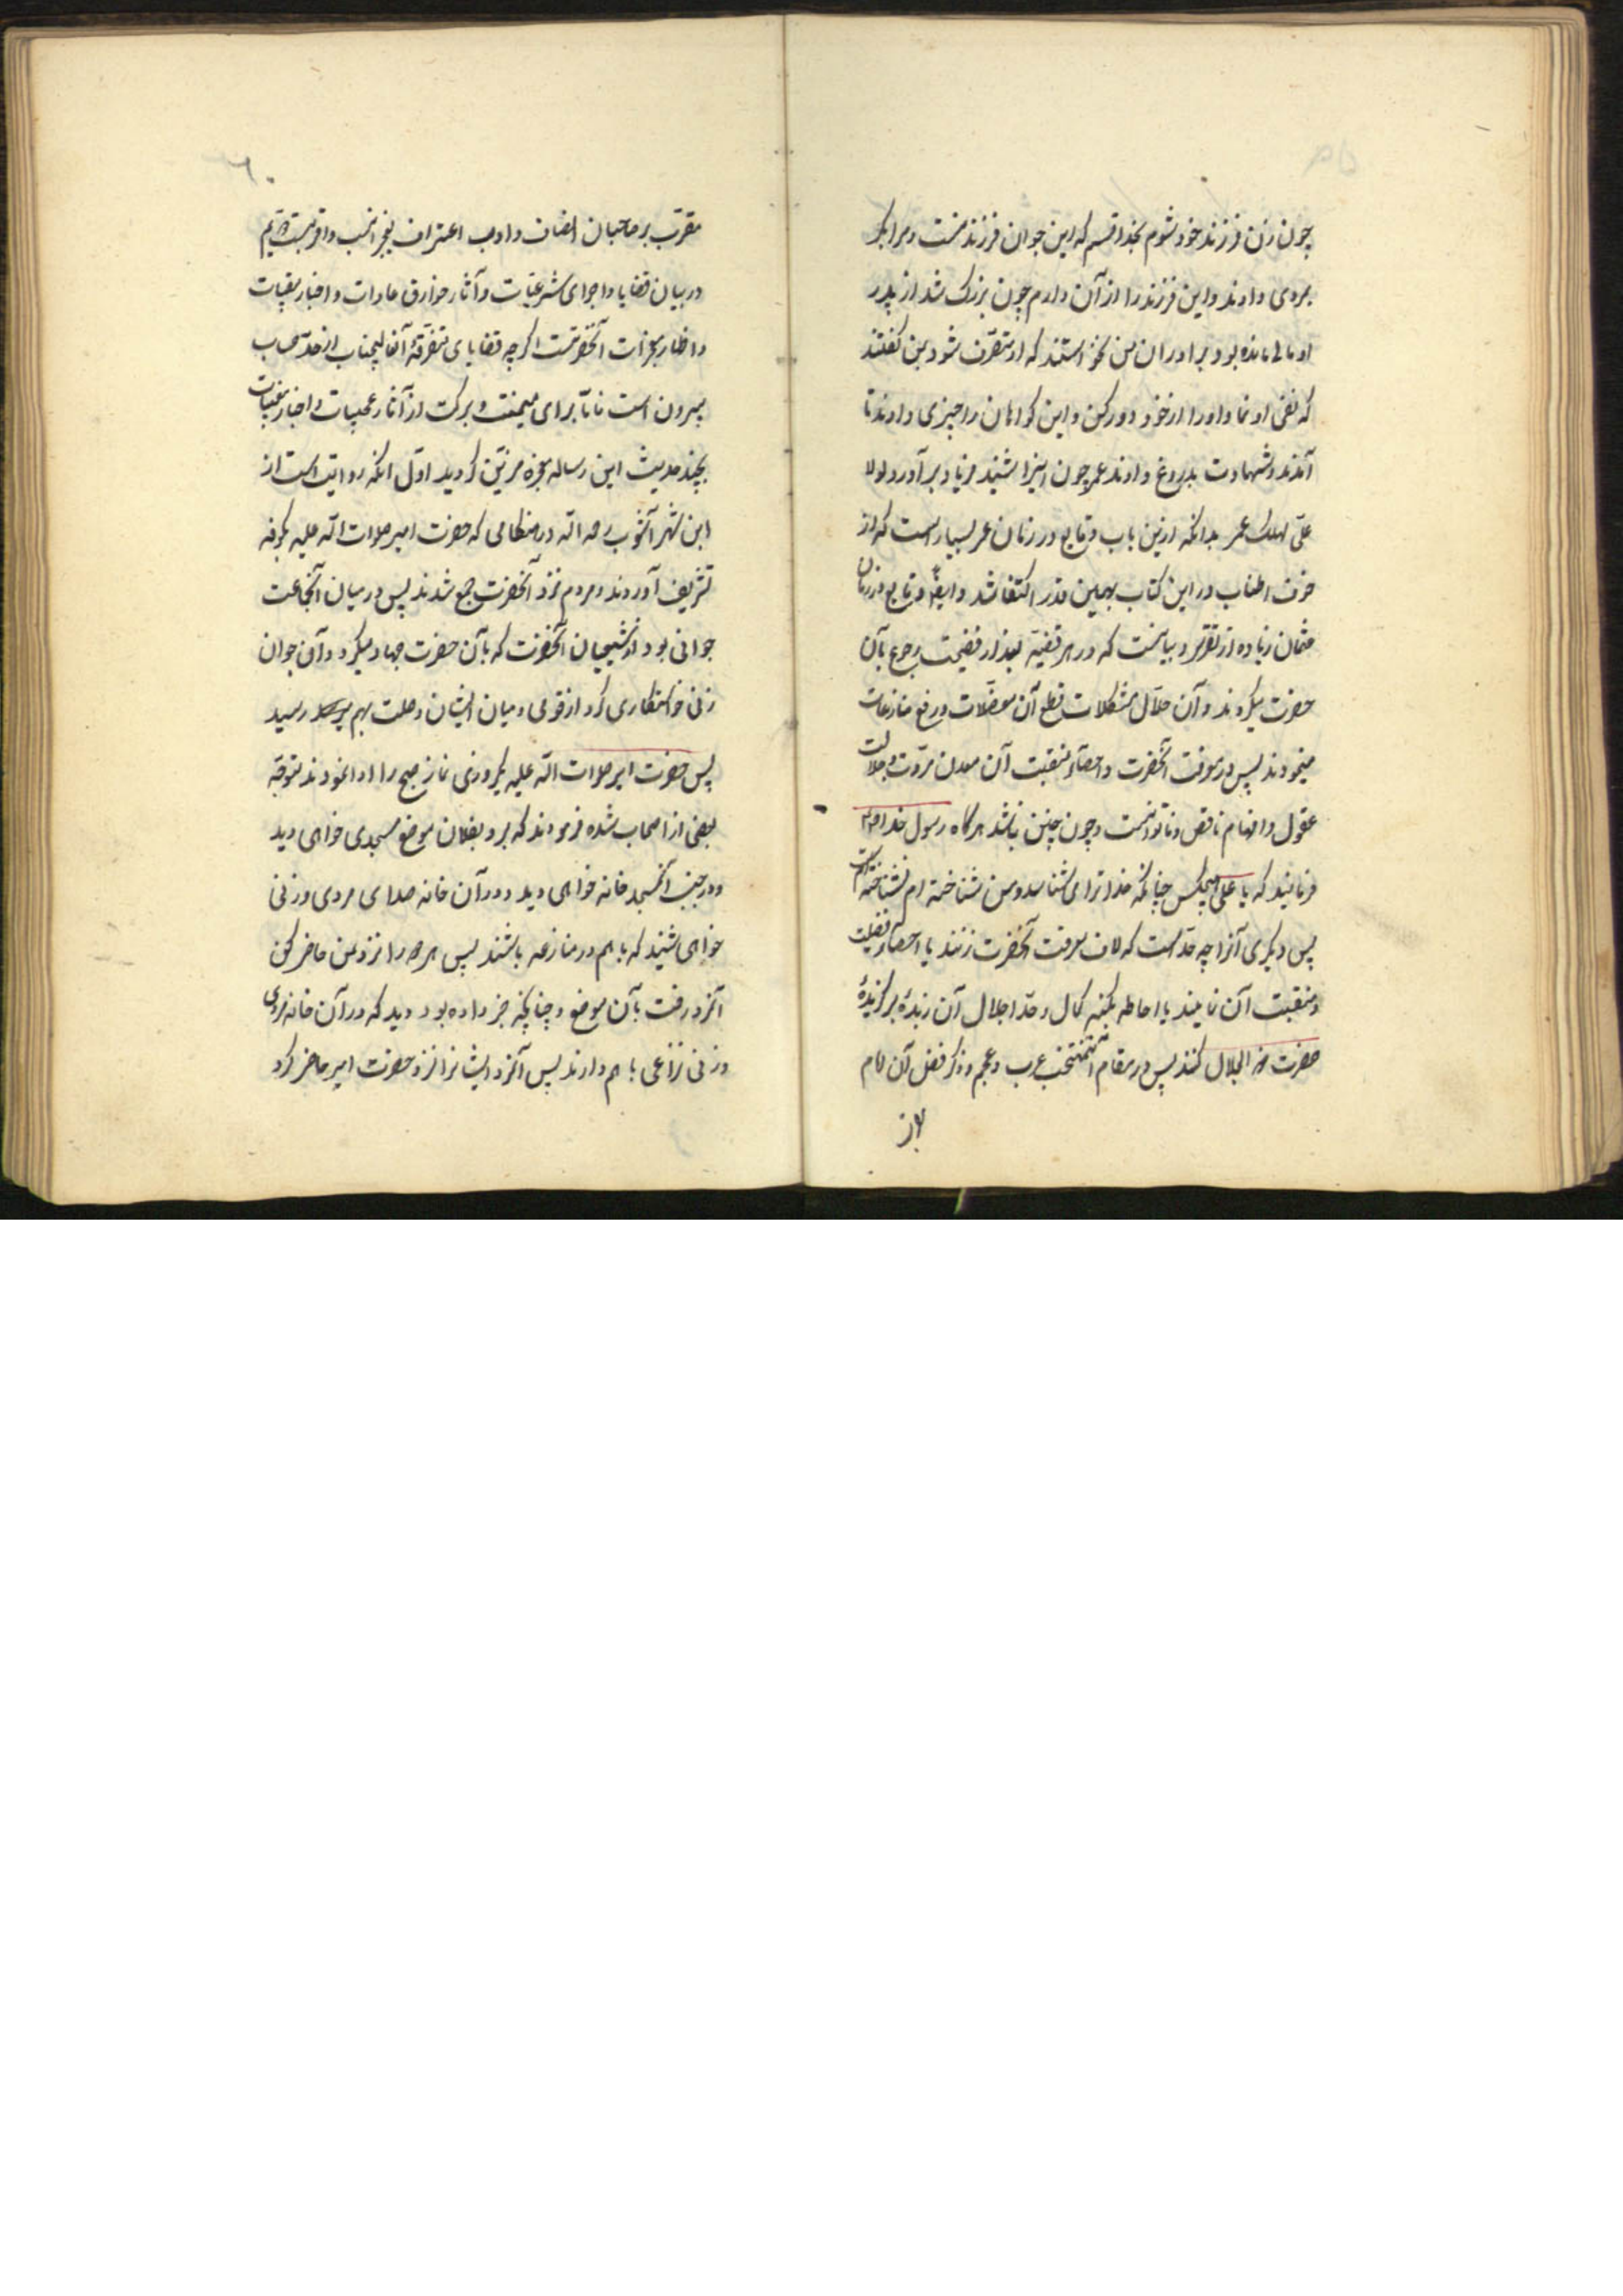 چون زن فرزند خود شوم بخدا قسم که این جوان فرزند منست و مرا بکر
بروی دادند و این فرزند را از آن دارم چون بزرک شد از پدر
او مالی مانده بود برادران من نخواستند که او متصرف شود بمن کفتند
که نفی او نما و او را از خود دور کن و این کواهان را چیزی دادند تا
آمدند و شهادت بدروغ دادند عمر چون اینرا شنید فریاد برآورد لولا
علی لهلک عمر بدانکه ازین باب وقایع در زمان عمر بسیار است که از
خوف اطناب در این کتاب بهمین قدر اکتفا شد و ایضا وقایع در زمان
عثمان زیاده از تقریر و بیانست که در هر قضیه بعد از فضیحت رجوع بآن
حضرت میکردند و آن حلال مشکلات قطع آن معضلات و رفع منازعات
مینمودند پس در معرفت آنحضرت و احصاء منقبت آن معدن مروت و جلالت
عقول و افهام ناقص و ناتوانست و چون چنین نباشد هرکاه رسول خدا
فرمایند که یا علی هیچکس چنانکه خدا ترا می شناسد و من شناخته ام نشناخته است
پس دیکری آنرا چه حد است که لاف معرفت آنحضرت زنند یا احصار فضیلت
و منقبت آن نمایند یا احاطه بکنه کمال و حد اجلال آن زبدهٔ برکزیدهٔ
حضرت ذو الجلال کنند پس در مقام منتخب عرب و عجم و ذکر فضل آن امام
مقرب بر صاحبان انصاف و ادب اعتراف بعجز انسب و اقربست
در بیان قضایا و اجرای شرعیات و آثار خوارق عادات و اخبار مغیبات
و اظهار معجزات آنحضرتست اکرچه قضایای متفرقهٔ آنعالیجناب از حد حساب
بیرون است فاما برای میمنت و برکت از آثار عجیبات و اخبار مغیبات
بچند حدیث این رساله معجزه مزین کردید اول آنکه روایت است از
ابن شهر آشوب رحمه الله در هنکامی که حضرت امیر صلوات الله علیه بکوفه
تشریف آوردند و مردم نزد آنحضرت جمع شدند پس در میان آنجماعت
جوانی بود از شیعیان آنحضرت که بآن حضرت جهاد میکرد و آن جوان
زنی خواستکاری کرد از قومی و میان ایشان وصلت بهم رسید
پس حضرت امیر صلوات الله علیه یکروزی نماز صبح را ادا نمودند متوجه
بعضی از اصحاب شده فرمودند که برو بفلان موضع مسجدی خواهی دید
و در جنب آنمسجد خانه خواهی دید و در آن خانه صدای مردی و زنی
خواهی شنید که با هم در منازعه باشند پس هر دو را نزد من حاضر کن
آنمرد رفت بآن موضع و چنانچه خبر داده بود دید که در آن خانه مردی
و زنی نزاعی با هم دارند پس آنمرد ایشانرا نزد حضرت امیر حاضر کرد